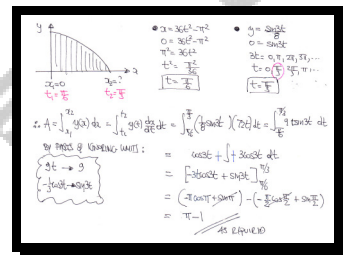 y
x
x₁=0 x₂=?
t₁=π/6 t₂=π/3
• x = 36t² - π²
0 = 36t² - π²
π² = 36t²
t² = π²/36
t = π/6
• y = sin3t/8
0 = sin3t/8
3t = 0, π, 2π, 3π, ...
t = 0, π/3, 2π/3, π, ...
t = π/3
∴ A = ∫ y(x) dx = ∫ y(t) dx/dt dt = ∫ (1/8 sin3t)(72t) dt = ∫ 9t sin3t dt
BY PARTS & IGNORING LIMITS:
9t → 9
-1/3 cos3t ← sin3t
= -3t cos3t + ∫ 3cos3t dt
= [-3t cos3t + sin3t]
= (-π cosπ + sinπ) - (-π/2 cos π/2 + sin π/2)
= π - 1
AS REQUIRED